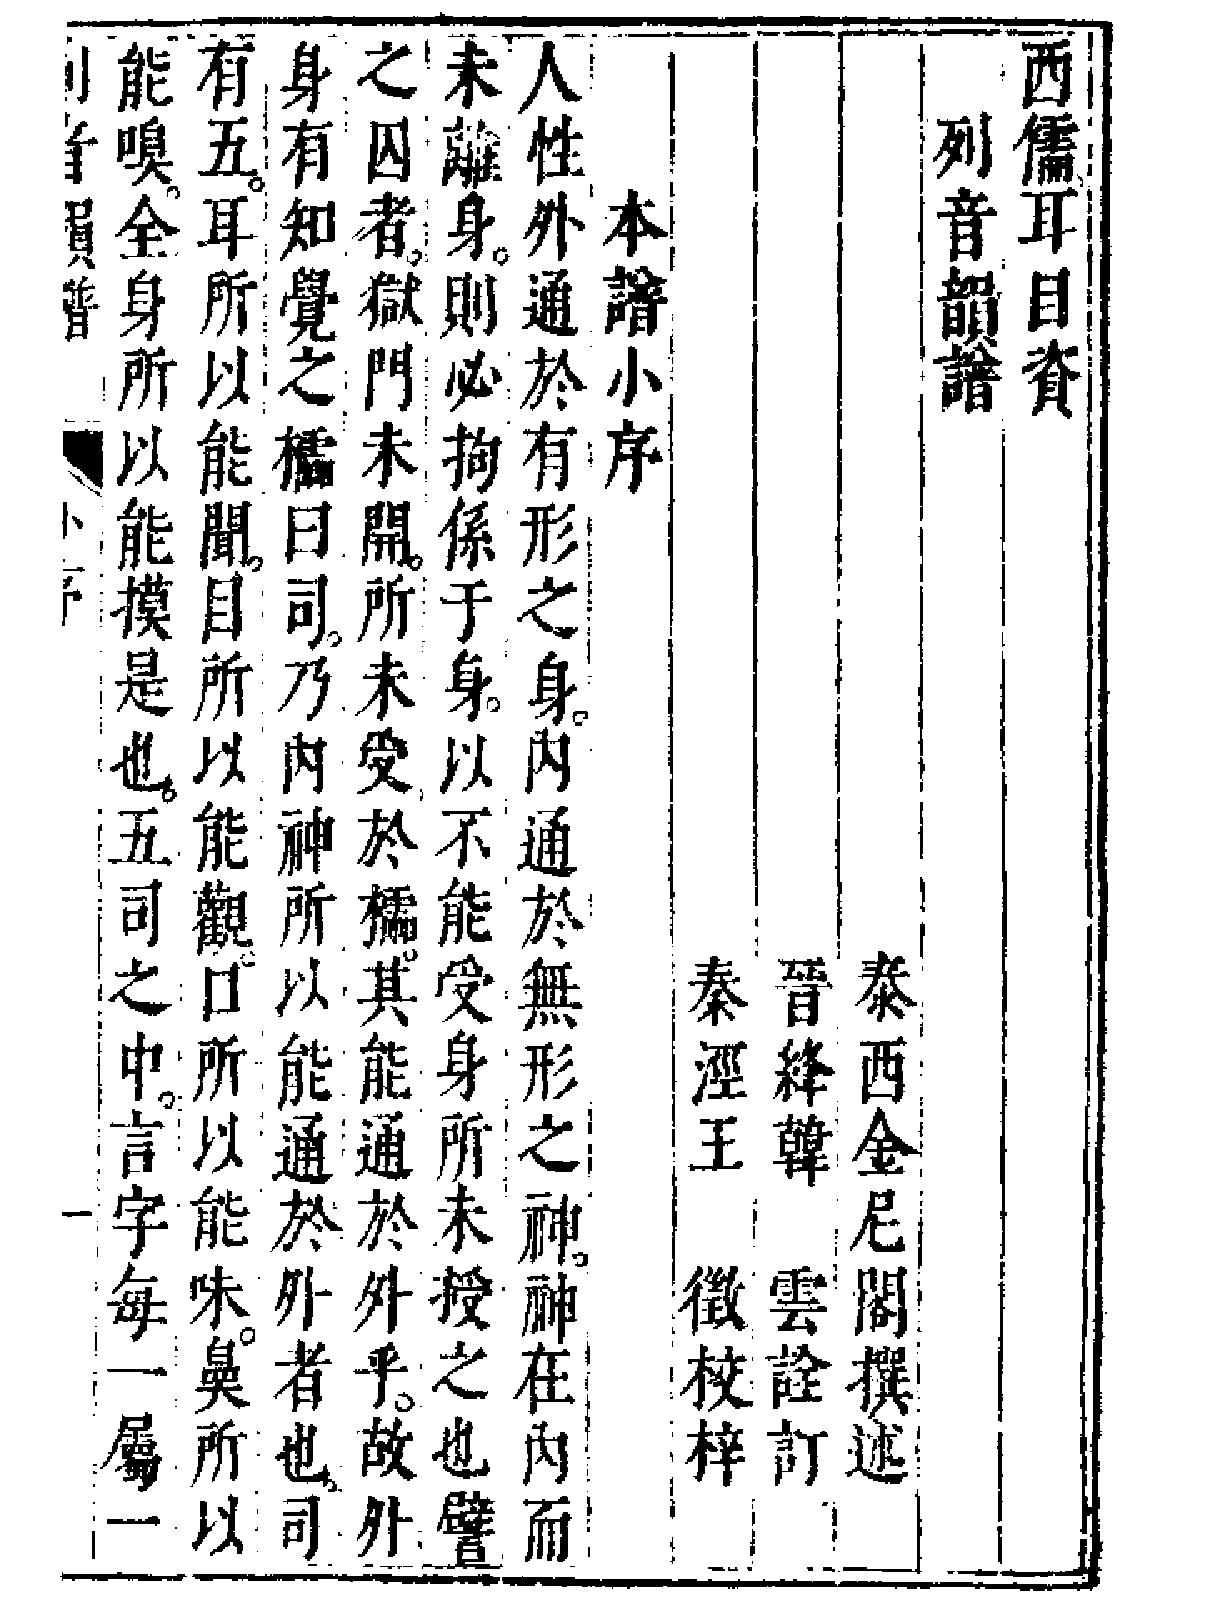 西儒耳目資
列音韻譜
泰西金尼閣撰述
晉絳韓　雲詮訂
秦涇王　徵校梓
本譜小序
人性外通於有形之身。內通於無形之神。神在內而
未離身。則必拘係于身。以不能受身所未授之也譬
之囚者。獄門未開。所未受於櫺。其能通於外乎。故外
身有知覺之櫺曰司。乃內神所以能通於外者也。司
有五。耳所以能聞。目所以能觀。口所以能味。鼻所以
能嗅。全身所以能摸是也。五司之中。言字每一屬一
列音韻譜　小序　一